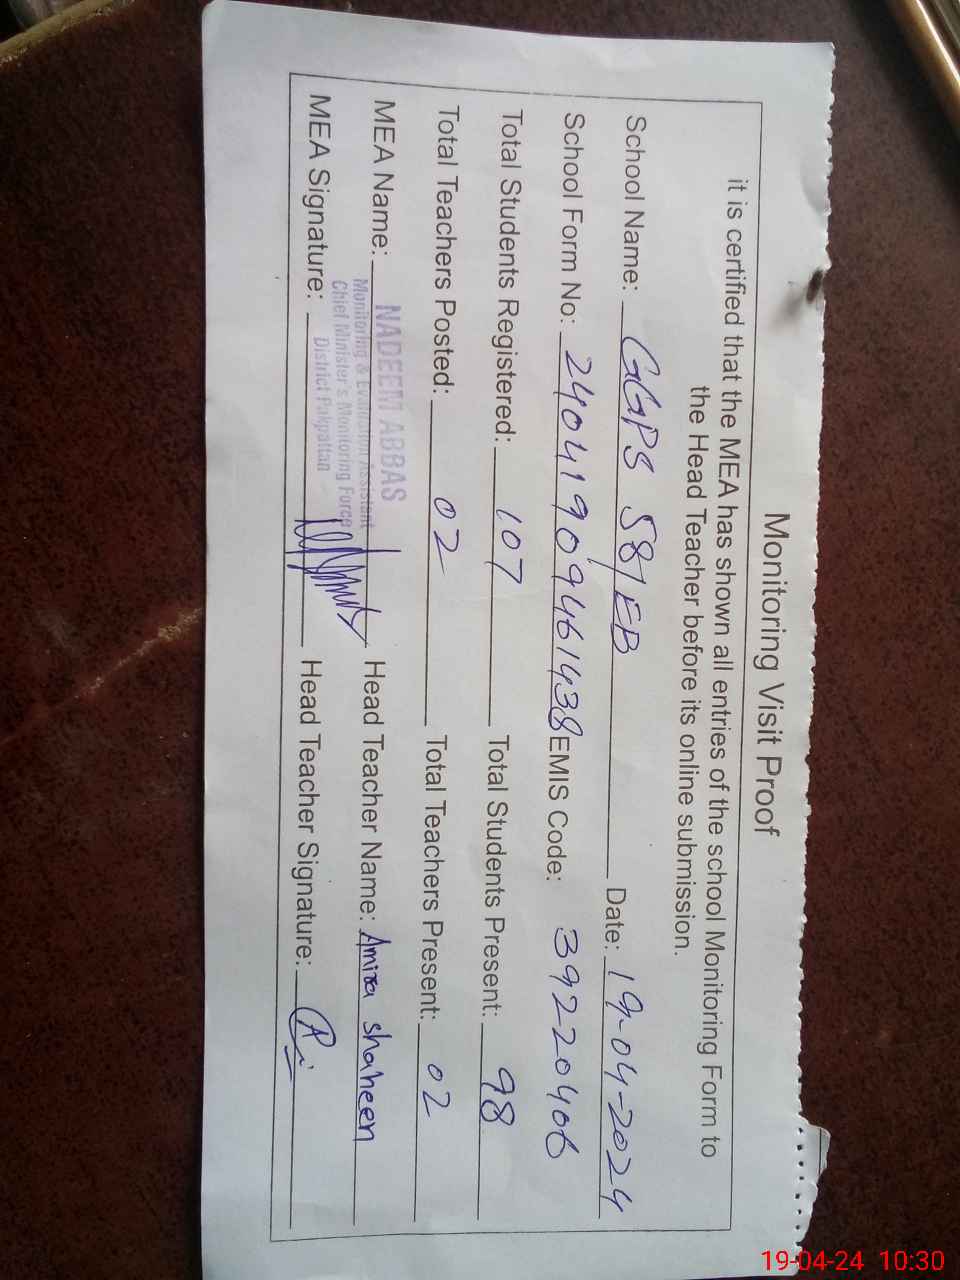 Monitoring Visit Proof
it is certified that the MEA has shown all entries of the school Monitoring Form to
the Head Teacher before its online submission.
School Name: GGPS 58/EB Date: 19-04-2024
School Form No: 24041909461438 EMIS Code: 39220406
Total Students Registered: 107 Total Students Present: 98
Total Teachers Posted: 02 Total Teachers Present: 02
MEA Name: NADEEM ABBAS Head Teacher Name: Amira shaheen
Monitoring & Evaluation Assistant
Chief Minister's Monitoring Force
District Pakpattan
MEA Signature: Head Teacher Signature:
19-04-24 10:30